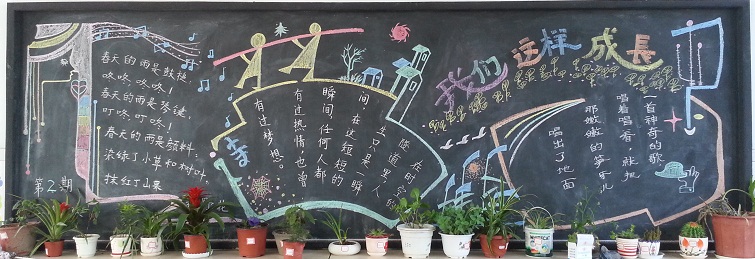 春天的雨是鼓槌，
咚咚，咚咚！
春天的雨是琴键，
叮咚，叮咚！
春天的雨是颜料，
染绿了小草和树叶，
抹红了山果
第2期
在时空的
隧道里，人
生只是一瞬
间，在这短短的
瞬间，任何人都
有过热情，也曾
有过梦想。
我们这样成長
一首神奇的歌
唱着唱着，就把
那嫩嫩的笋芽儿
唱出了地面